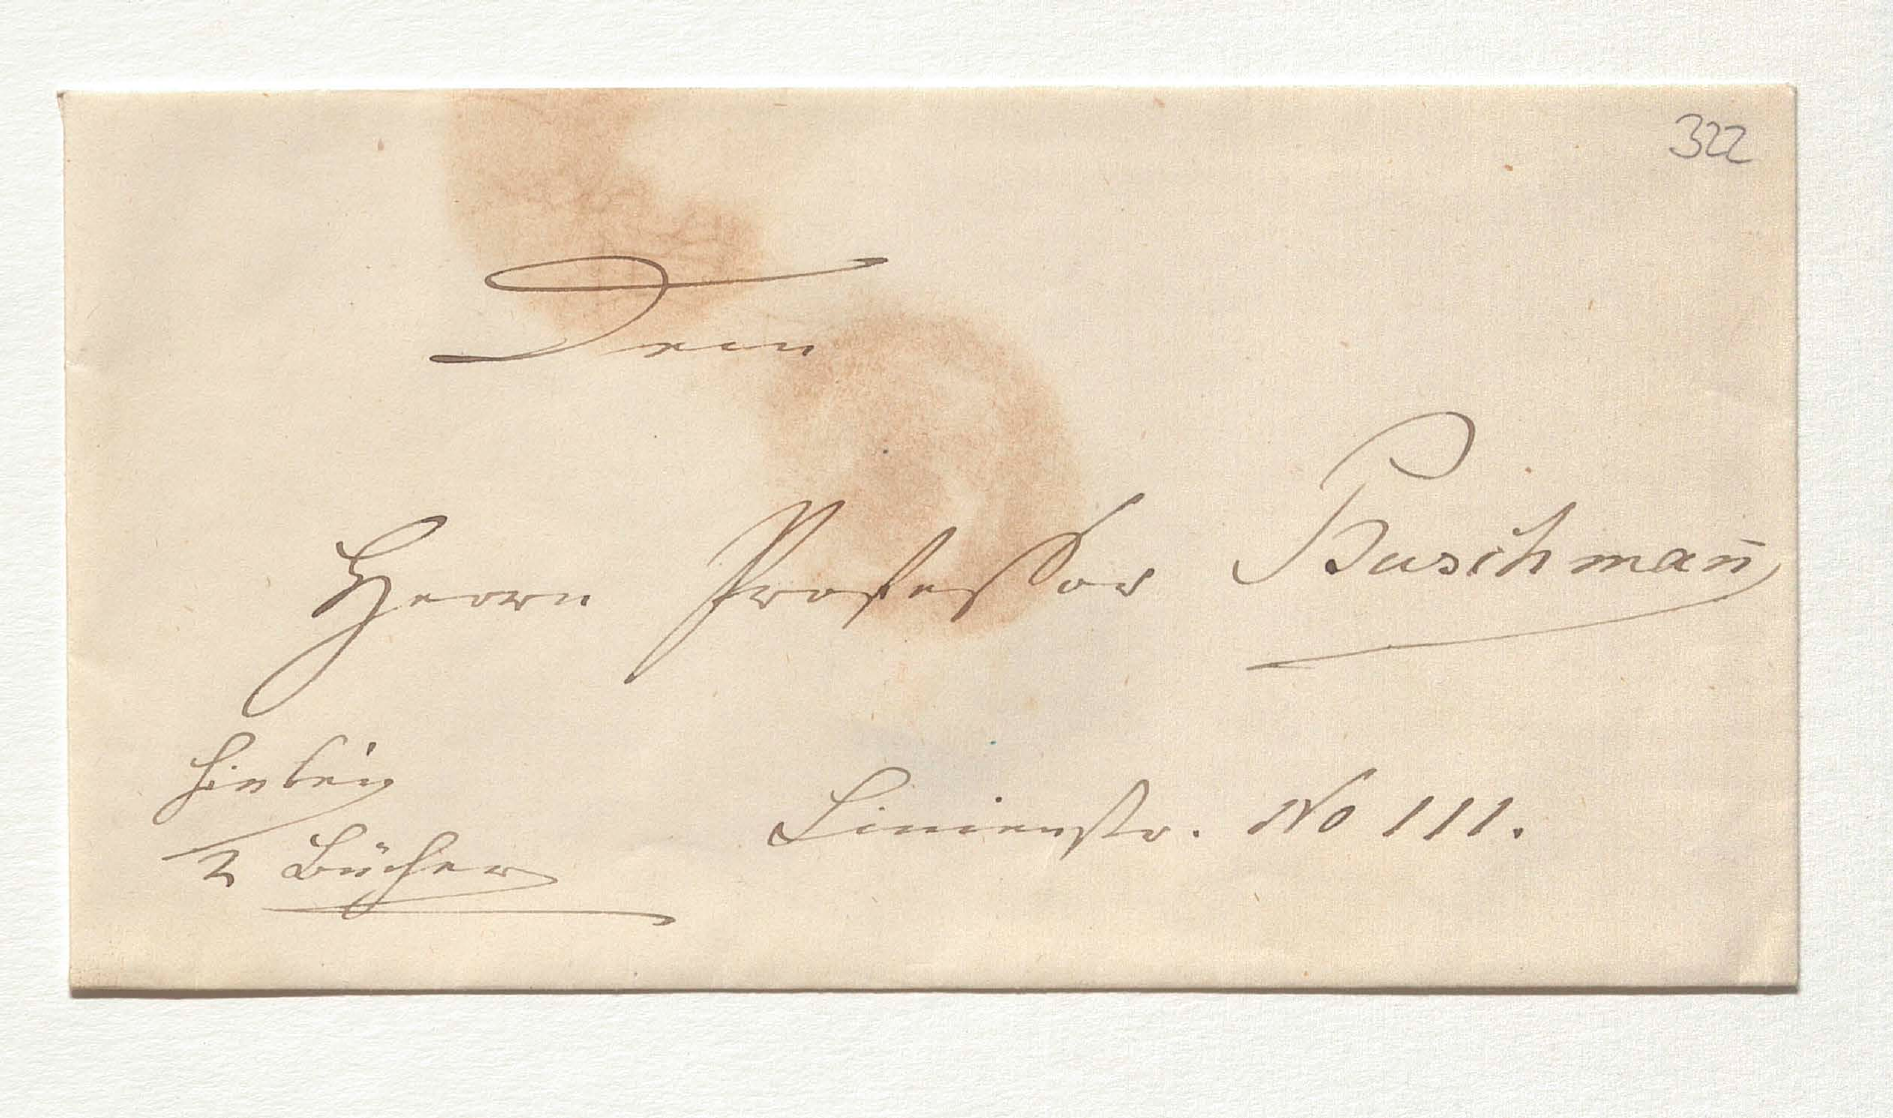 322
Dem
Herrn Professor Buschmañ
Linienstr. No 111.
hierbei
2 Bücher